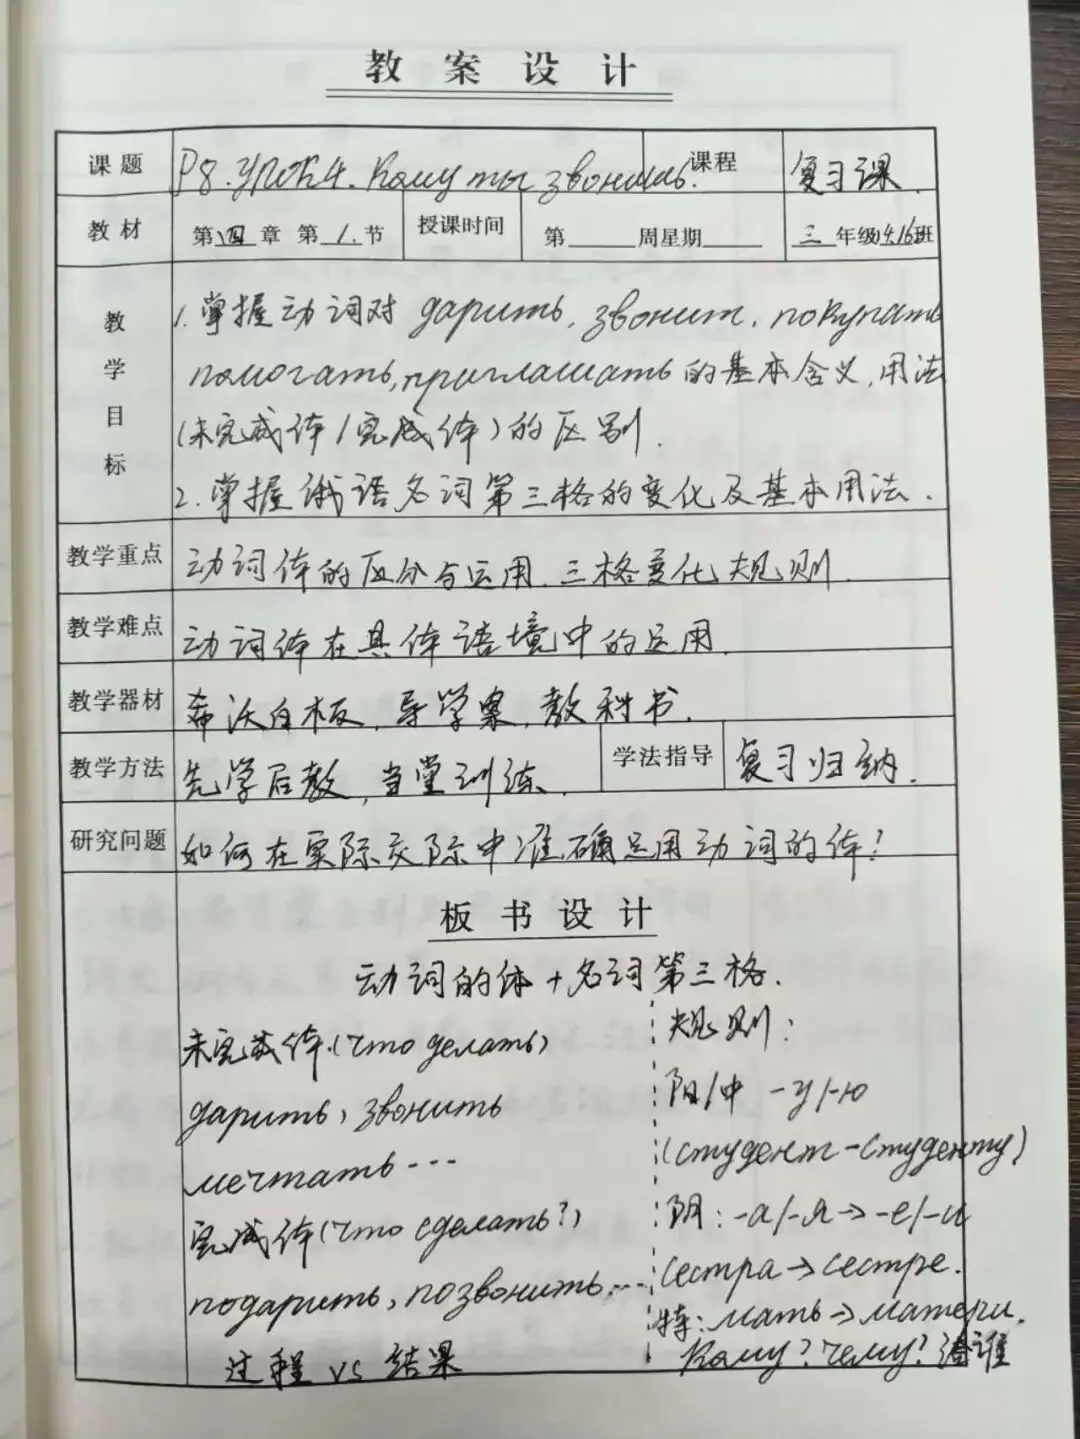 教案设计
课题 P8.УРОК4.Кому ты звонишь. 课程 复习课.
教材 第四章 第1.节 授课时间 第 周星期 三年级14.16班
教学目标
1.掌握动词对 дарить, звонит, покупать
помогать, приглашать的基本含义,用法
(未完成体/完成体)的区别.
2.掌握俄语名词第三格的变化及基本用法.
教学重点 动词体的区分与运用.三格变化规则.
教学难点 动词体在具体语境中的运用.
教学器材 希沃白板,导学案,教科书.
教学方法 先学后教,当堂训练. 学法指导 复习归纳.
研究问题 如何在实际交际中准确运用动词的体?
板书设计
动词的体+名词第三格.
未完成体.(что делать)
дарить, звонить
мечтать---
完成体(что сделать?)
подарить, позвонить...
过程 vs 结果
规则:
阳/中 -у/-ю
(студент-студенту)
阴: -а/-я→-е/-и
сестра→сестре.
特: мать→матери.
Кому? Чему? 谁